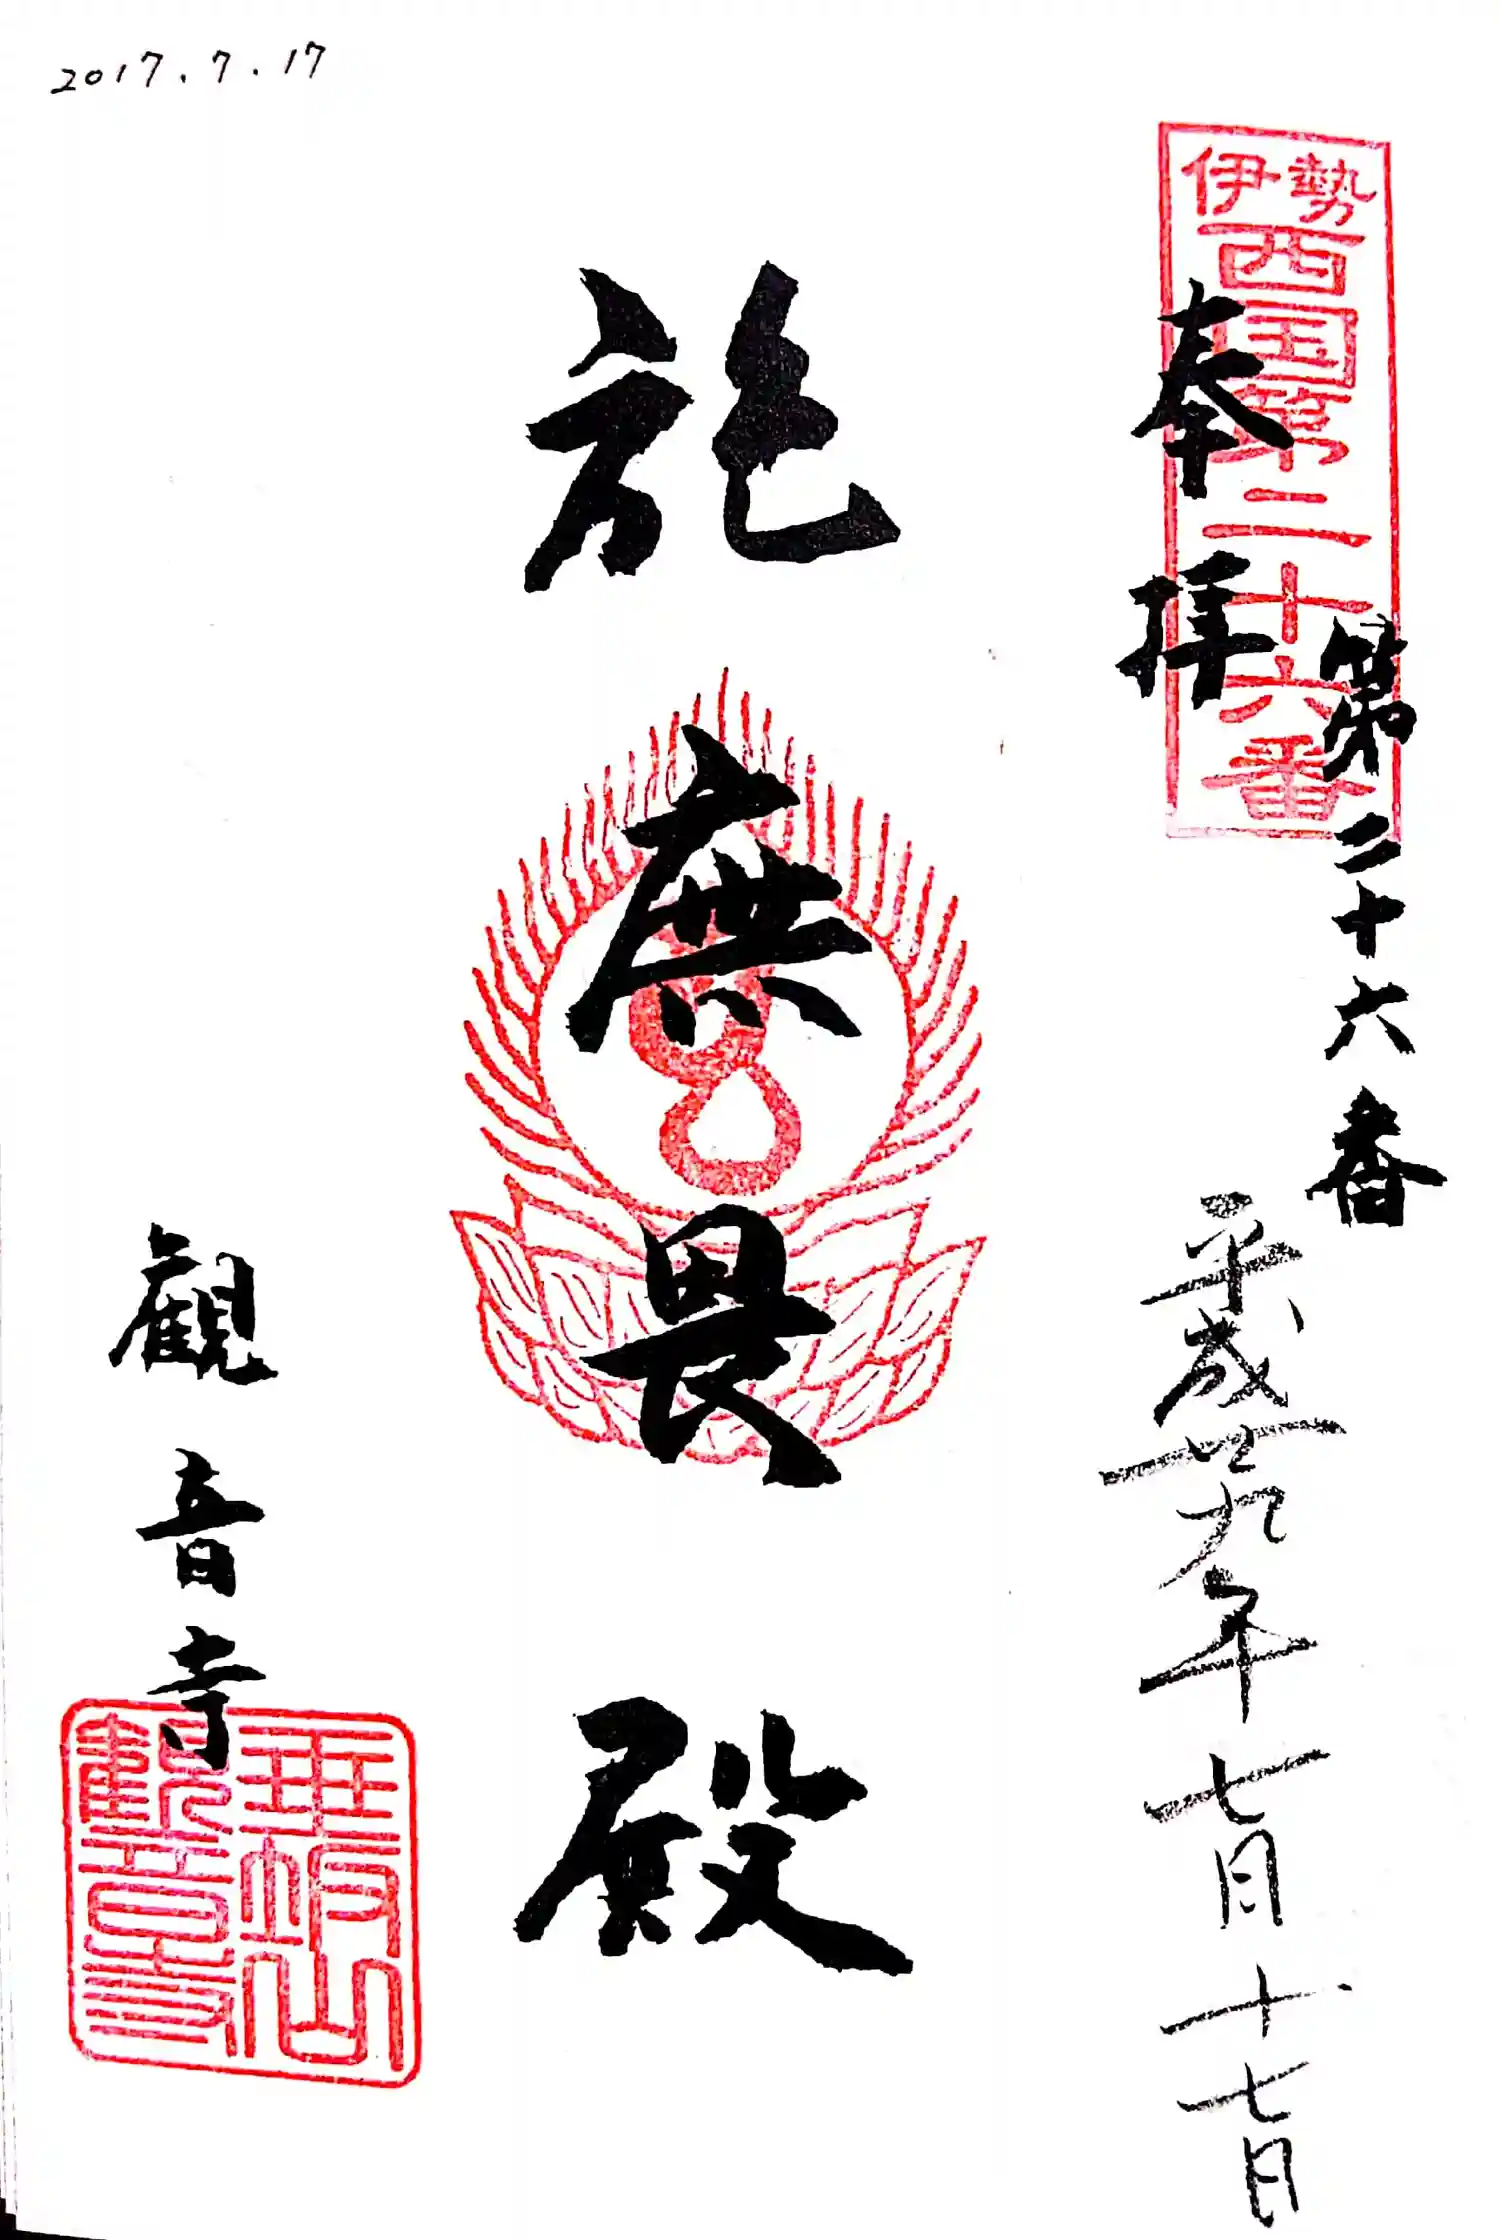 2017.7.17
伊勢
西国第二十六番
第二十六番
奉拝
平成廿九年七月十七日
施無畏殿
観音寺
垂坂山
観音寺